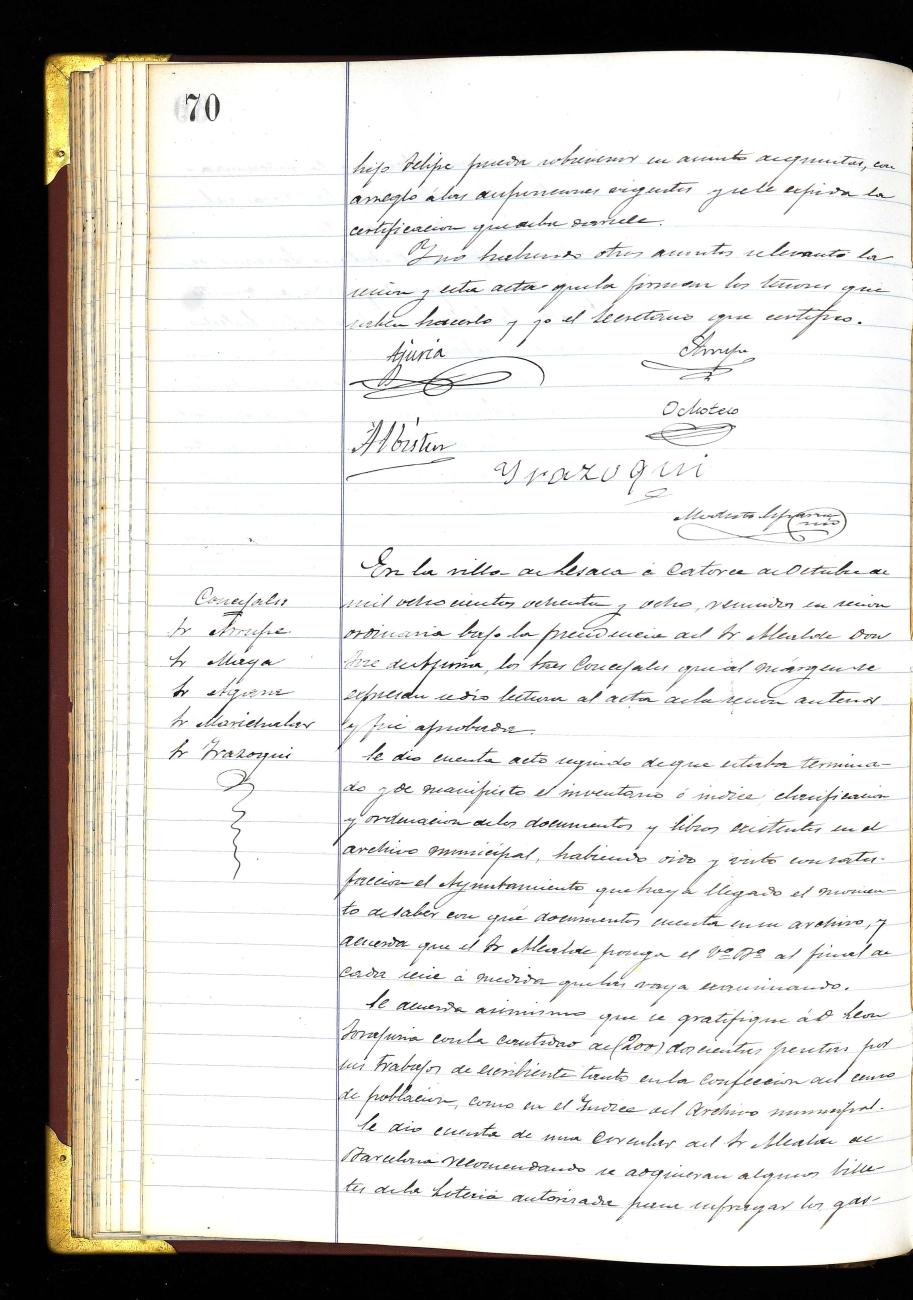 70
hijo Felipe pueda sobrevenir en asunto de quintas, con
arreglo á las disposiciones vigentes y se le espida la
certificacion que deba darsele.
Y no habiendo otros asuntos se levanto la
sesion y esta acta que la firman los Señores que
saben hacerlo y yo el Secretario que certifico.
Ajuria
Arrupe
Ochoteco
Albistur
Yrazoqui
Modesto
En la villa de Lesaca á Catorce de Octubre de
mil ochocientos ochenta y ocho, reunidos en sesion
ordinaria bajo la presidencia del Sr Alcalde Don
José de Ajuria, los tres Concejales que al márgen se
espresan se dio lectura al acta de la sesion anterior
y fué aprobada.
Concejales
Sr Arrupe
Sr Maya
Sr
Sr Marichalar
Sr Yrazoqui
Se dio cuenta acto seguido de que estaba termina-
do y de manifiesto el inventario ó indice, clasificacion
y ordenacion de los documentos y libros existentes en el
archivo municipal, habiendo oido y visto con satis-
faccion el Ayuntamiento que haya llegado el momen-
to de saber con qué documentos cuenta en su archivo, y
acuerda que el Sr Alcalde ponga el Vº Bº al final de
cada serie á medida que las vaya examinando.
Se acuerda asimismo que se gratifique á D. Leon
con la cantidad de (200) doscientas pesetas por
sus trabajos de escribiente tanto en la confeccion del censo
de poblacion, como en el Yndice del Archivo municipal.
Se dio cuenta de una Circular del Sr Alcalde de
Barcelona recomendando se adquieran algunos bille-
tes de la Loteria autorizada para sufragar los gas-